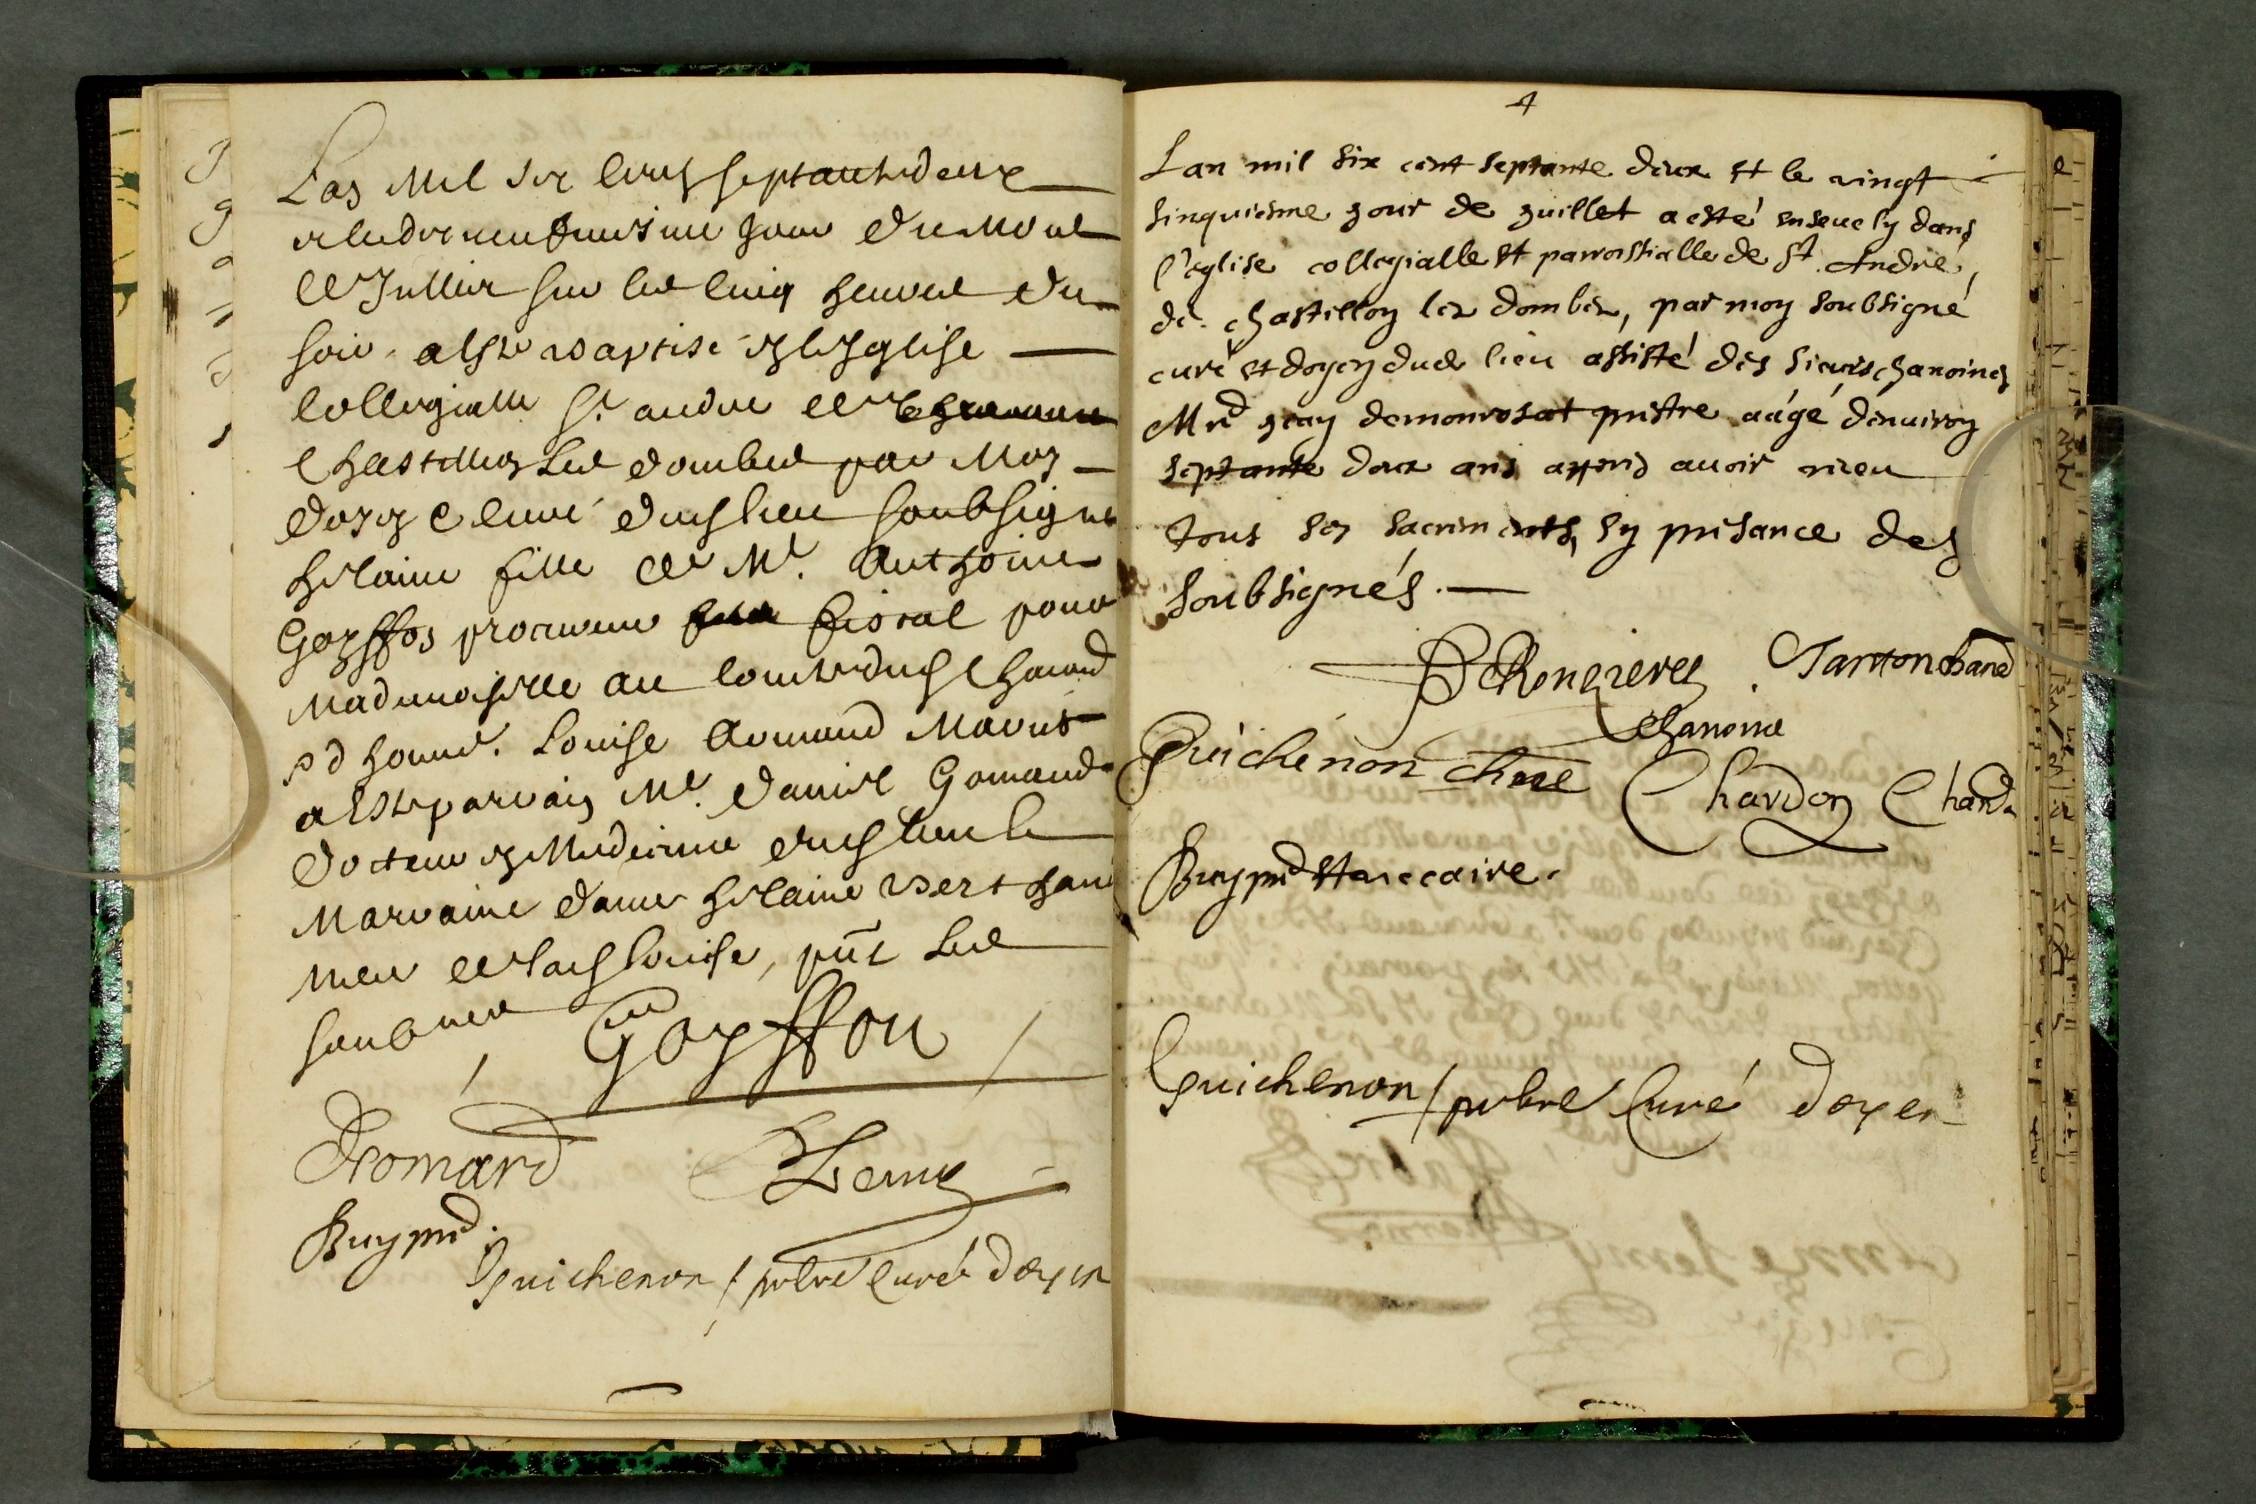 Lan Mil six cents septante deux
et le dix neufviesme jour du mois
de Juillet sur les cinq heures du
soir a esté baptisé en lesglise
collegialle St andré de
Chastillon les dombes par Moy
doyen Curé dud lieu soubsigné
hilaire fille de Mr. Anthoine
Goyffon procureur fiscal pour
Mademoiselle au Comté dud
honnê. Louise Armand Mariés
a esté parrain Mr. daniel Gomand
docteur en Medecine dud lieu la
Marraine dame hilaire
mere de lad louise, pnt les
soubnes
Goyffon
DGomard
BLemy
Buy pnd.
Guichenon / prbre Curé doyen
4
Lan mil six cent septante deux et le vingt
sinquiesme jour de juillet a esté enseuely dans
l'eglise collegialle et parroissialle de St. André,
de chastillon les dombes, par moy soubsigné
curé et doyen dud lieu assisté des sieurs chanoines
Mre jean demonrosat prestre aagé denuiron
septante deux ans appres auoir receu
tous ses sacrements, en presance des
soubsignés.
Chanoine
Guichenon chne
Chardon Chan
Buy pnd et
Guichenon / prbre Curé doyen